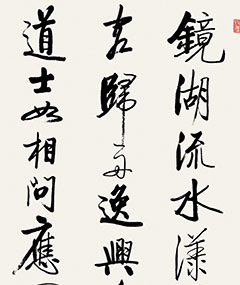 鏡湖流水漾
客歸舟逸興
道士如相問應